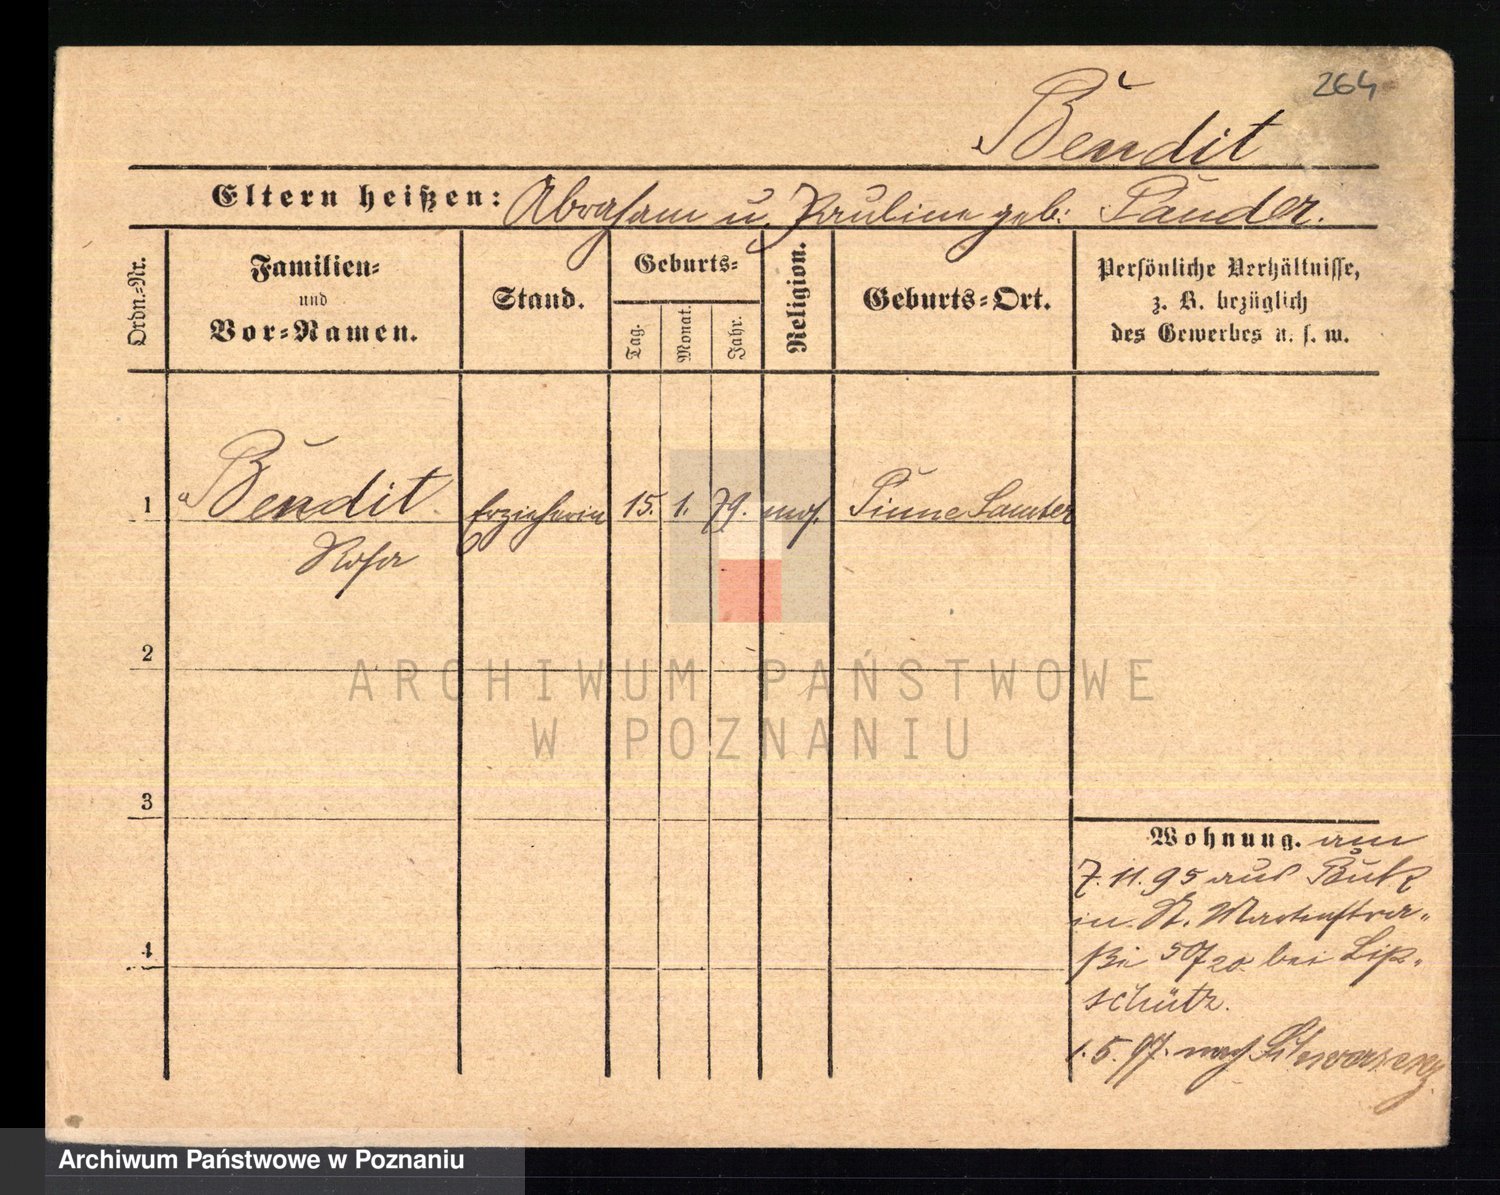 264
Bendit
Eltern heißen: Abraham u. Pauline geb. Lauder.
Ordn.-Nr.
Familien-
und
Vor-Namen.
Stand.
Geburts-
Tag.
Monat.
Jahr.
Religion.
Geburts-Ort.
Persönliche Verhältnisse,
z. B. bezüglich
des Gewerbes u. s. w.
1 Bendit Erzieherin 15. 1. 79. mos. Pinne Samter
Rosa
2
3
4
Wohnung. am
7.11.95 aus Buk
in St. Martinstra-
ße 50/20 bei Lip-
schütz.
1.5.97. nach
ARCHIWUM PAŃSTWOWE
W POZNANIU
Archiwum Państwowe w Poznaniu